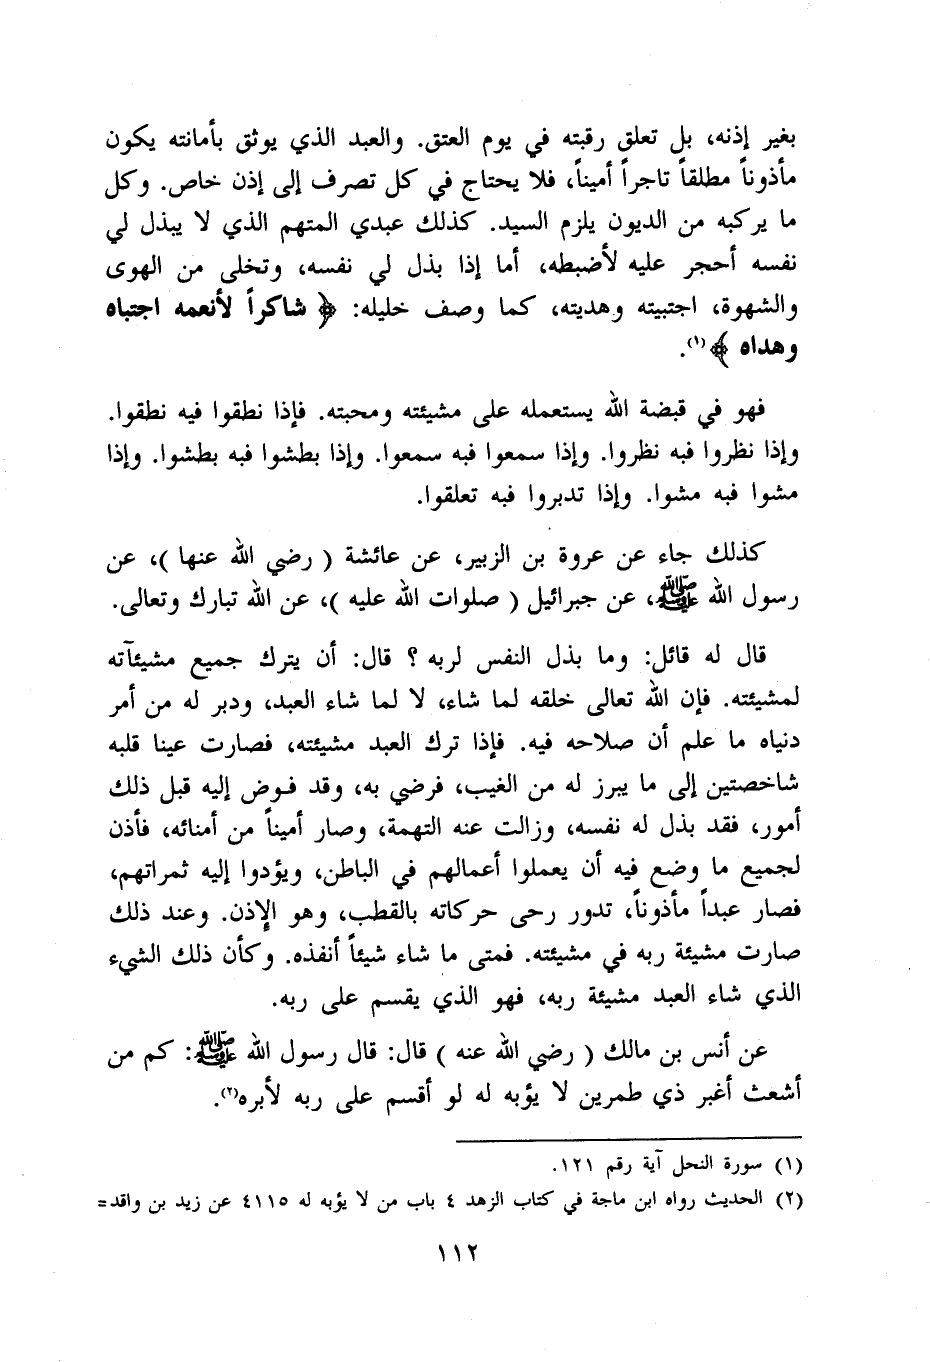 بغير إذنه، بل تعلق رقبته في يوم العتق. والعبد الذي يوثق بأمانته يكون
مأذوناً مطلقاً تاجراً أميناً، فلا يحتاج في كل تصرف إلى إذن خاص. وكل
ما يركبه من الديون يلزم السيد. كذلك عبدي المتهم الذي لا يبذل لي
نفسه أحجر عليه لأضبطه، أما إذا بذل لي نفسه، وتخلى من الهوى
والشهوة، اجتبيته وهديته، كما وصف خليله: ﴿ شاكراً لأنعمه اجتباه
وهداه ﴾(١).
فهو في قبضة الله يستعمله على مشيئته ومحبته. فإذا نطقوا فيه نطقوا.
وإذا نظروا فبه نظروا. وإذا سمعوا فبه سمعوا. وإذا بطشوا فبه بطشوا. وإذا
مشوا فبه مشوا. وإذا تدبروا فبه تعلقوا.
كذلك جاء عن عروة بن الزبير، عن عائشة ( رضي الله عنها )، عن
رسول الله ﷺ، عن جبرائيل ( صلوات الله عليه )، عن الله تبارك وتعالى.
قال له قائل: وما بذل النفس لربه ؟ قال: أن يترك جميع مشيئآته
لمشيئته. فإن الله تعالى خلقه لما شاء، لا لما شاء العبد، ودبر له من أمر
دنياه ما علم أن صلاحه فيه. فإذا ترك العبد مشيئته، فصارت عينا قلبه
شاخصتين إلى ما يبرز له من الغيب، فرضي به، وقد فوض إليه قبل ذلك
أمور، فقد بذل له نفسه، وزالت عنه التهمة، وصار أميناً من أمنائه، فأذن
لجميع ما وضع فيه أن يعملوا أعمالهم في الباطن، ويؤدوا إليه ثمراتهم،
فصار عبداً مأذوناً، تدور رحى حركاته بالقطب، وهو الإذن. وعند ذلك
صارت مشيئة ربه في مشيئته. فمتى ما شاء شيئاً أنفذه. وكأن ذلك الشيء
الذي شاء العبد مشيئة ربه، فهو الذي يقسم على ربه.
عن أنس بن مالك ( رضي الله عنه ) قال: قال رسول الله ﷺ: كم من
أشعث أغبر ذي طمرين لا يؤبه له لو أقسم على ربه لأبره(٢).
(١) سورة النحل آية رقم ١٢١.
(٢) الحديث رواه ابن ماجة في كتاب الزهد ٤ باب من لا يؤبه له ٤١١٥ عن زيد بن واقد=
١١٢